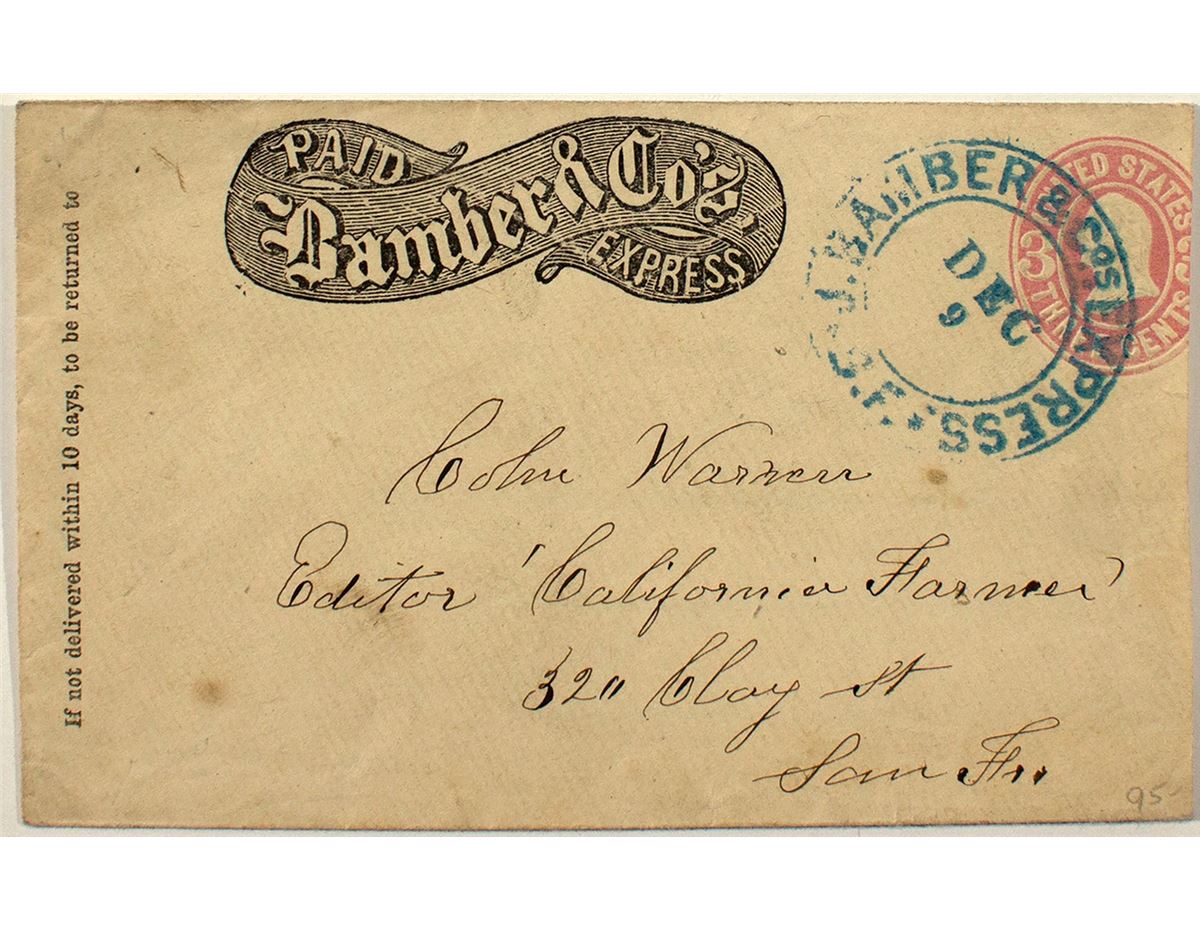 If not delivered within 10 days, to be returned to
PAID
Bamber & Co's.
EXPRESS
J. BAMBER & Cos EXPRESS. S.F.
DEC
9
UNITED STATES
3 THREE CENTS 3
Colm Warren
Editor 'California Farmer'
320 Clay St
San Fr..
95-